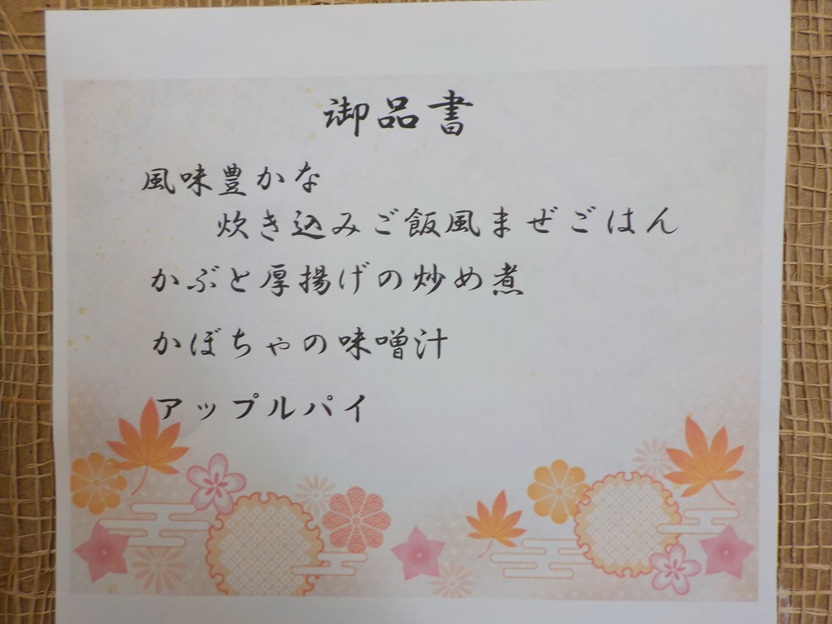 御品書
風味豊かな
炊き込みご飯風まぜごはん
かぶと厚揚げの炒め煮
かぼちゃの味噌汁
アップルパイ